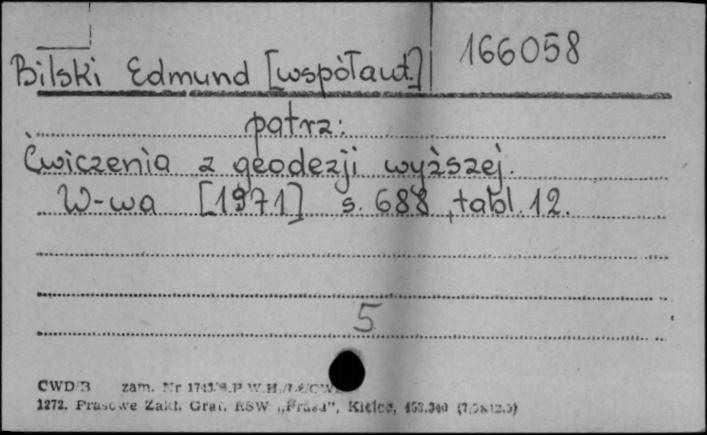 Bilski Edmund [współaut.] 166058
patrz:
Ćwiczenia z geodezji wyższej.
W-wa [1971] s. 688, tabl. 12.
5
CWD/B zam. Nr
1272. Prasowe Zakł. Graf. RSW „Prasa”, Kielce,